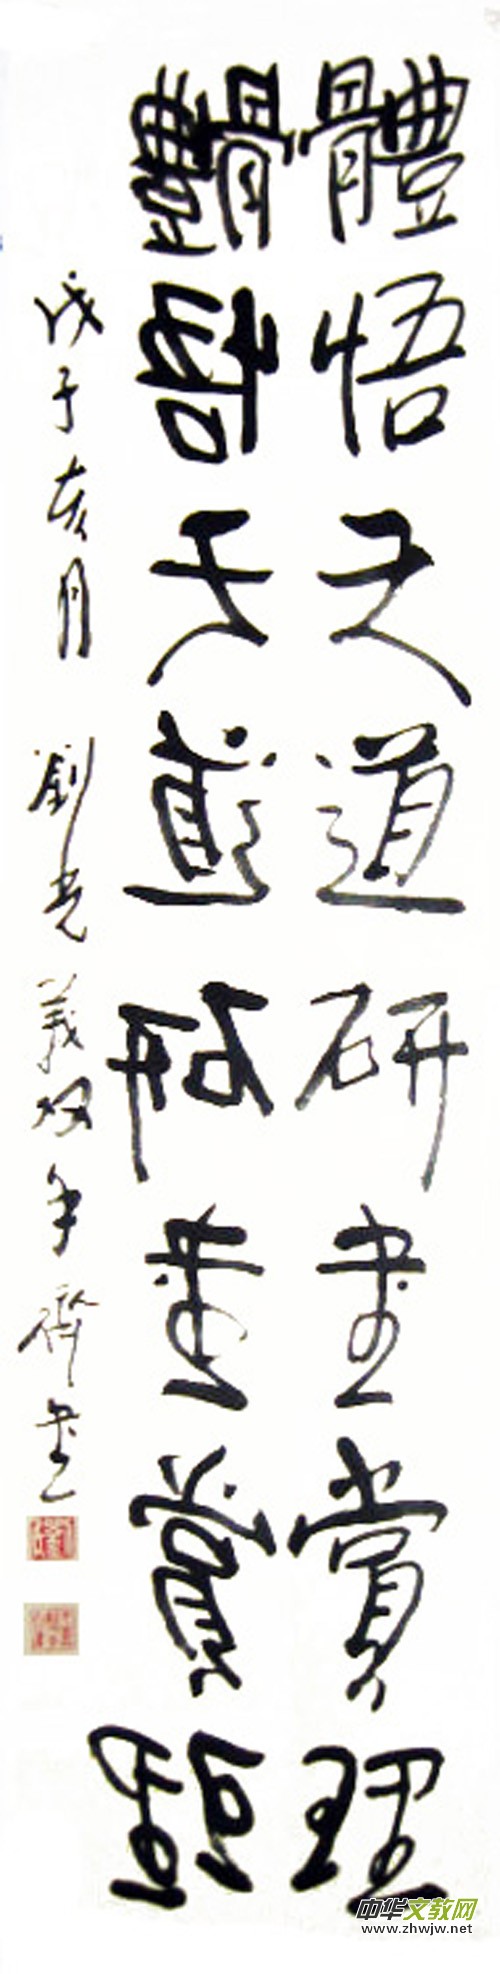 體悟天道研書賞理
體悟天道研書賞理
戊子亥月 劉光義双手齊書
中华文教网
www.zhwjw.net